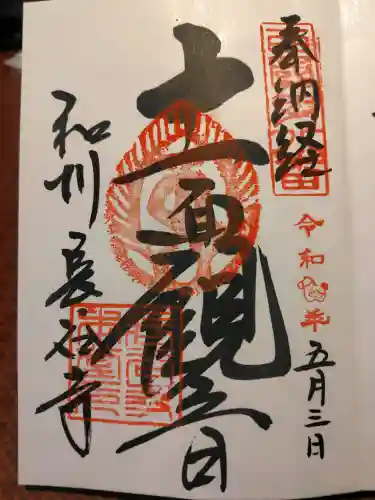 奉納経
令和年五月三日
十一面観音
和州 長寺